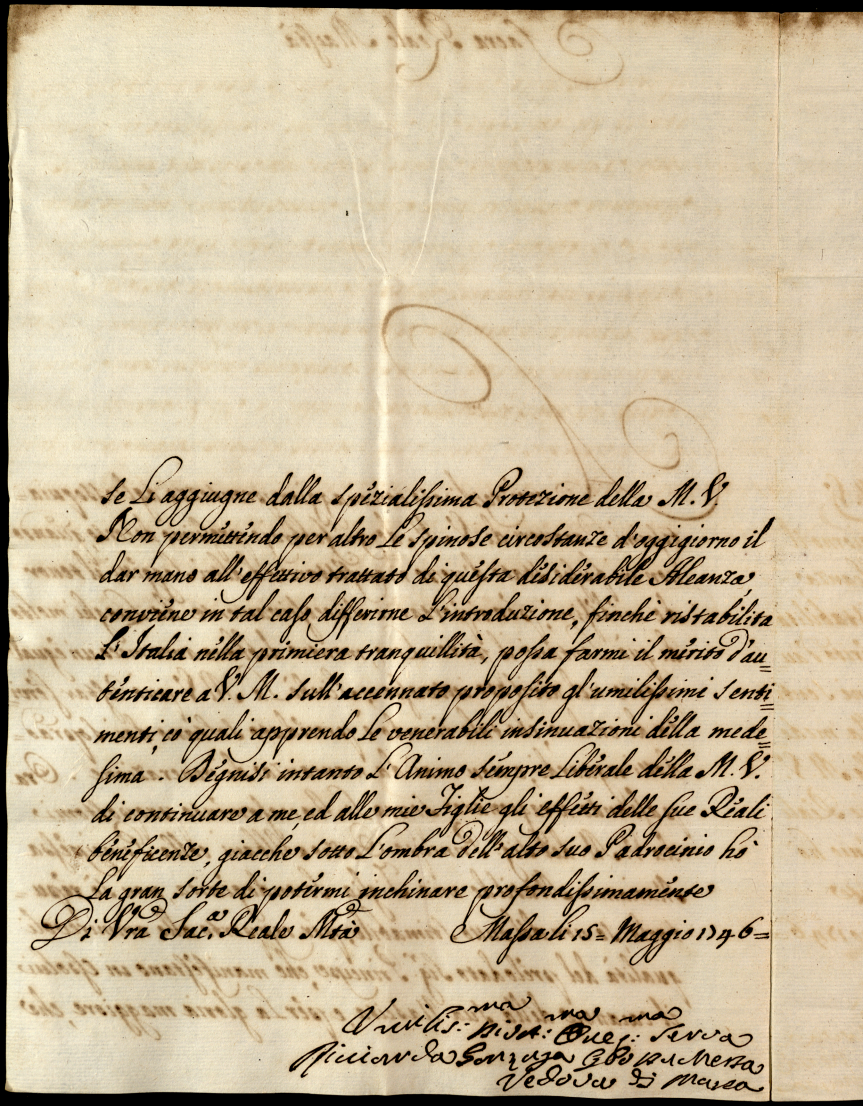 se Li aggiugne dalla spezialissima Protezione della M. V.
Non permettendo per altro Le spinose circostanze d'oggigiorno il
dar mano all'effettivo trattato di questa disiderabile Aleanza,
conviene in tal caso differirne L'introduzione, finchè ristabilita
L'Italia nella primiera tranquillità, possa farmi il merito d'au=
tenticare a V. M. sull'accennato proposito gl'umilissimi senti=
menti, co' quali apprendo Le venerabili insinuazioni della mede=
sima. Degnisi intanto L'Animo sempre Liberale della M. V.
di continuare a me, ed alle mie Figlie gli effetti delle sue Reali
beneficenze, giacche sotto L'ombra dell'alto suo Padrocinio hò
La gran sorte di potermi inchinare profondissimamente
Di Vrâ Sac.ª Reale Mtà Massa li 15= Maggio 1746=
Umilis:ma Divot:ma Obleg:ma Serva
Ricciarda Gonzaga Cybo
Vedova di Massa